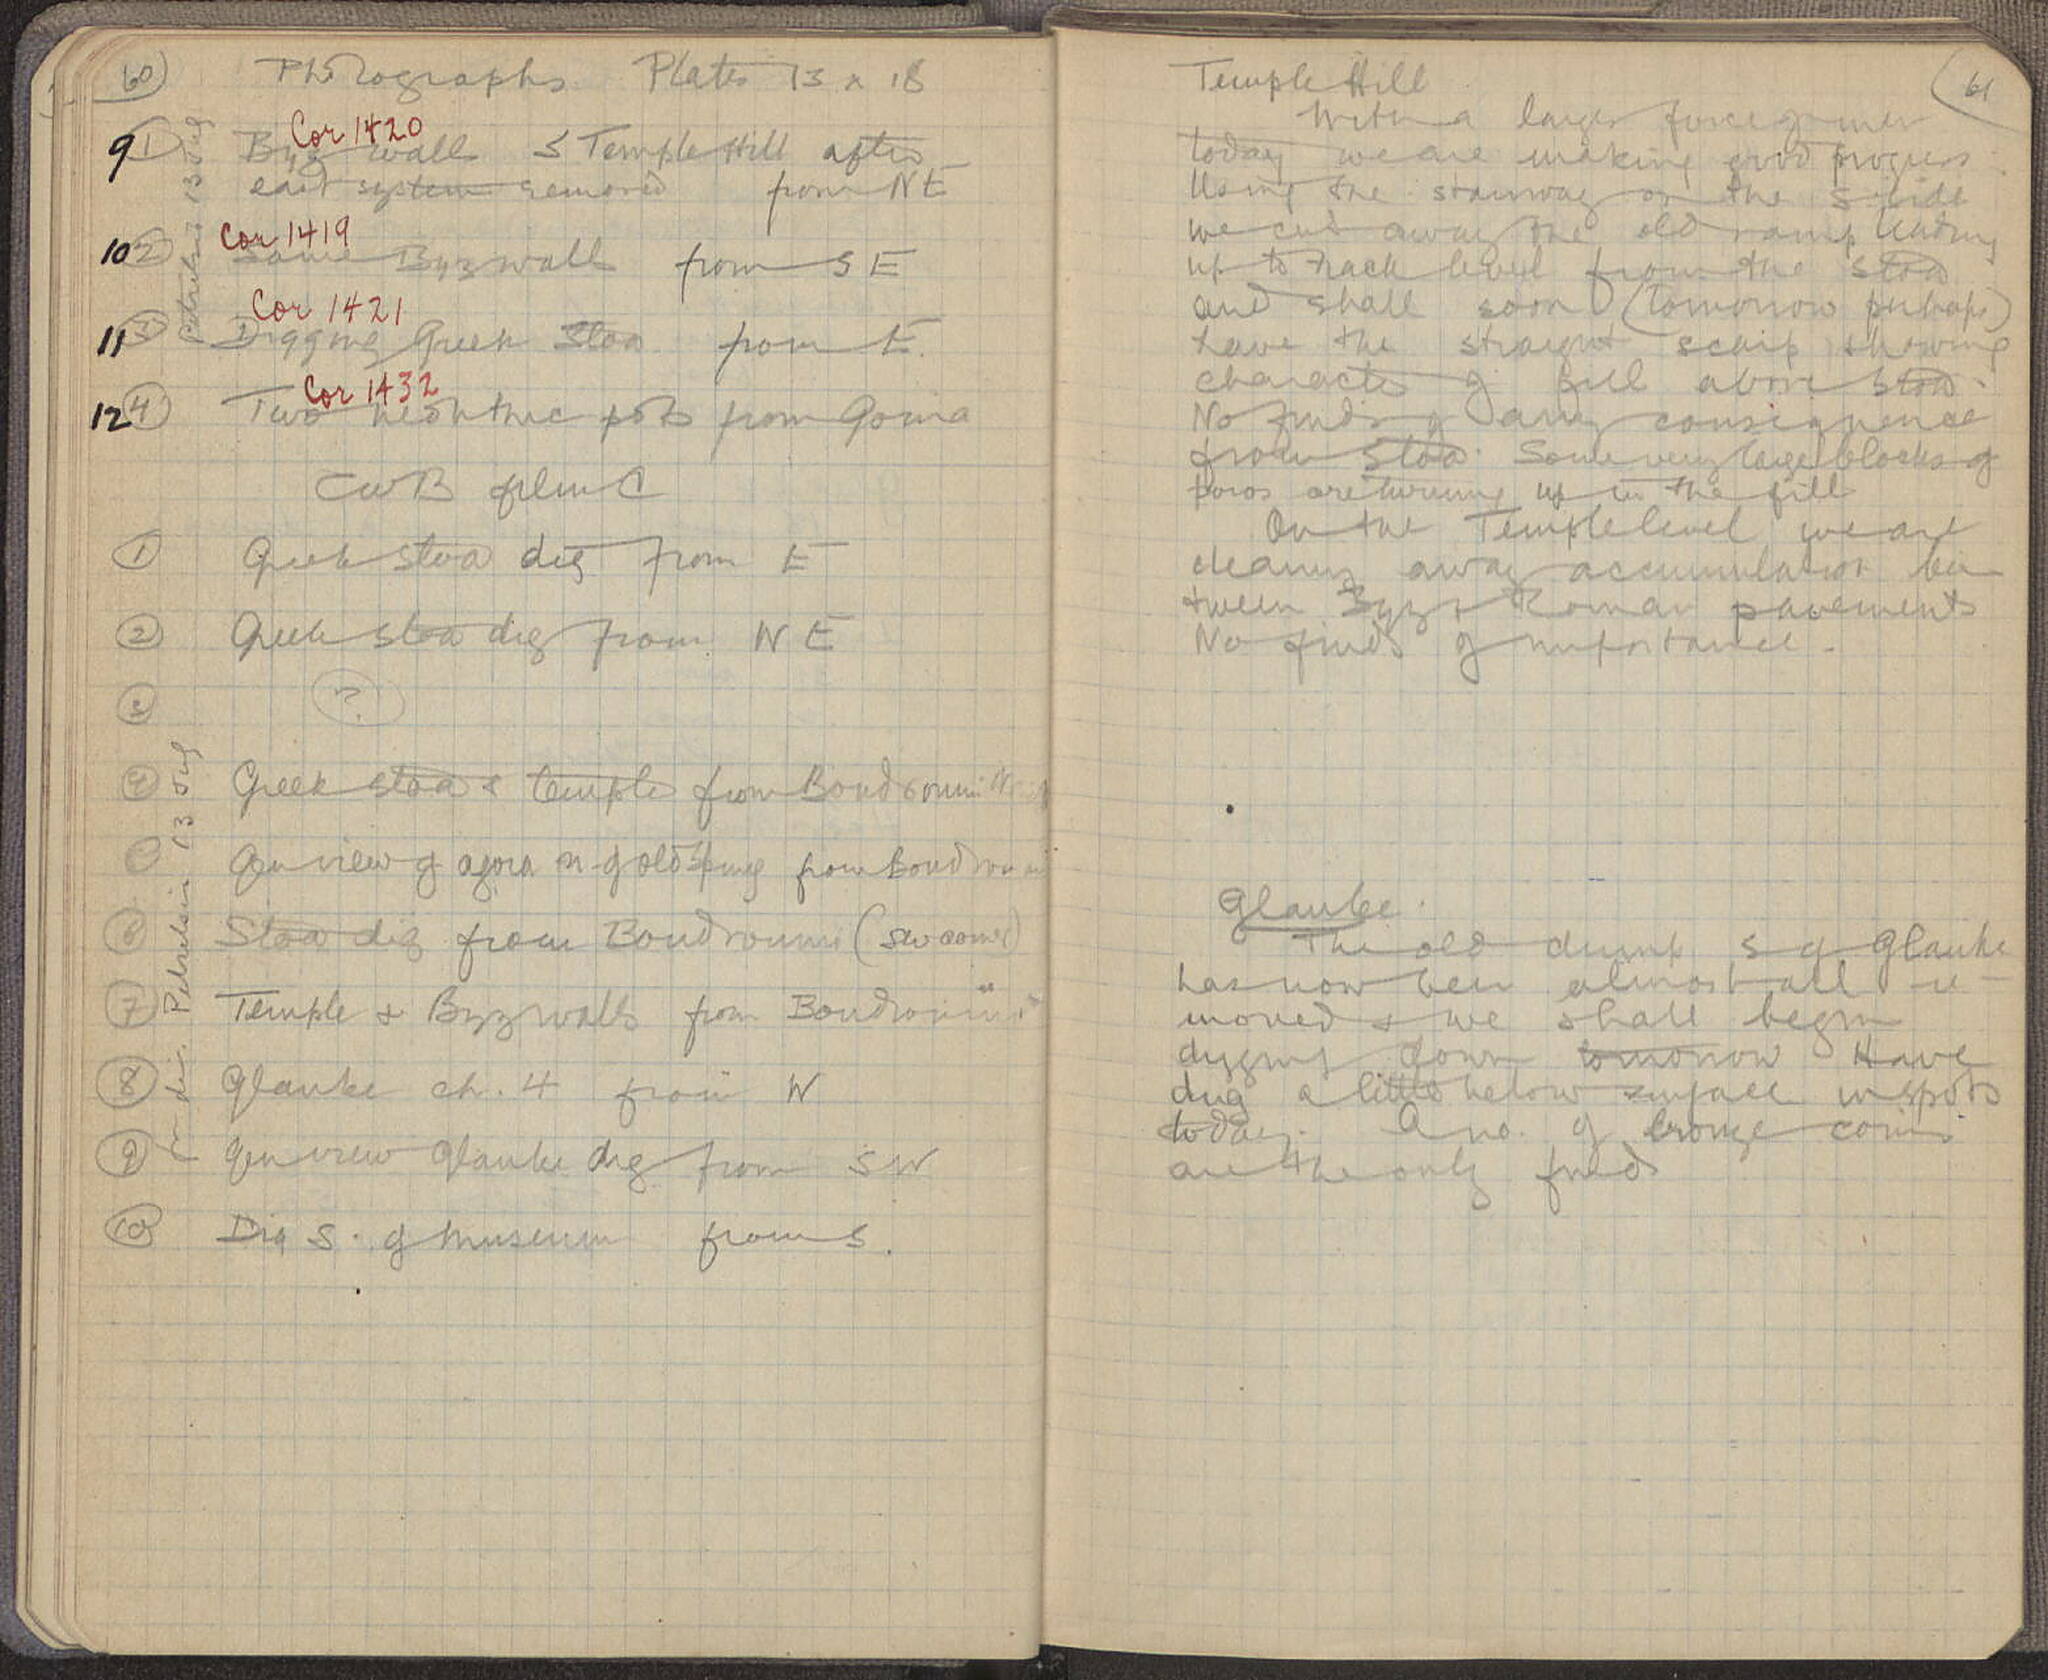 60
Photographs Plates 13 x 18
Cor 1420
9 1 Byz wall S Temple Hill after
east system removed from NE
Cor 1419
10 2 Same Byz wall from SE
Cor 1421
11 3 Digging Greek Stoa from E.
Cor 1432
12 4 Two neolithic pots from Gonia
CWB film C
1 Greek stoa dig from E
2 Greek stoa dig from NE
3 ?
4 Greek stoa & temple from Boudroumi
Gen view of agora n. of old spring from Boudroumi
6 Stoa dig from Boudroumi (SW corner)
7 Temple & Byz walls from Boudroumi
8 Glauke ch. 4 from W
9 Gen view Glauke dig from SW
10 Dig S. of Museum from S.
61
Temple Hill
With a larger force of men
today we are making good progress
Using the stairway on the S side
we cut away the old ramp leading
up to track level from the Stoa
and shall soon (tomorrow perhaps)
have the straight scarp showing
character of fill above Stoa.
No finds of any consequence
from Stoa. Some very large blocks of
poros are turning up in the fill
On the Temple level we are
cleaning away accumulation be
tween Byz & Roman pavements
No finds of importance.
Glauke.
The old dump S of Glauke
has now been almost all re-
moved & we shall begin
digging down tomorrow Have
dug a little below surface in spots
today. A no. of bronze coins
are the only finds